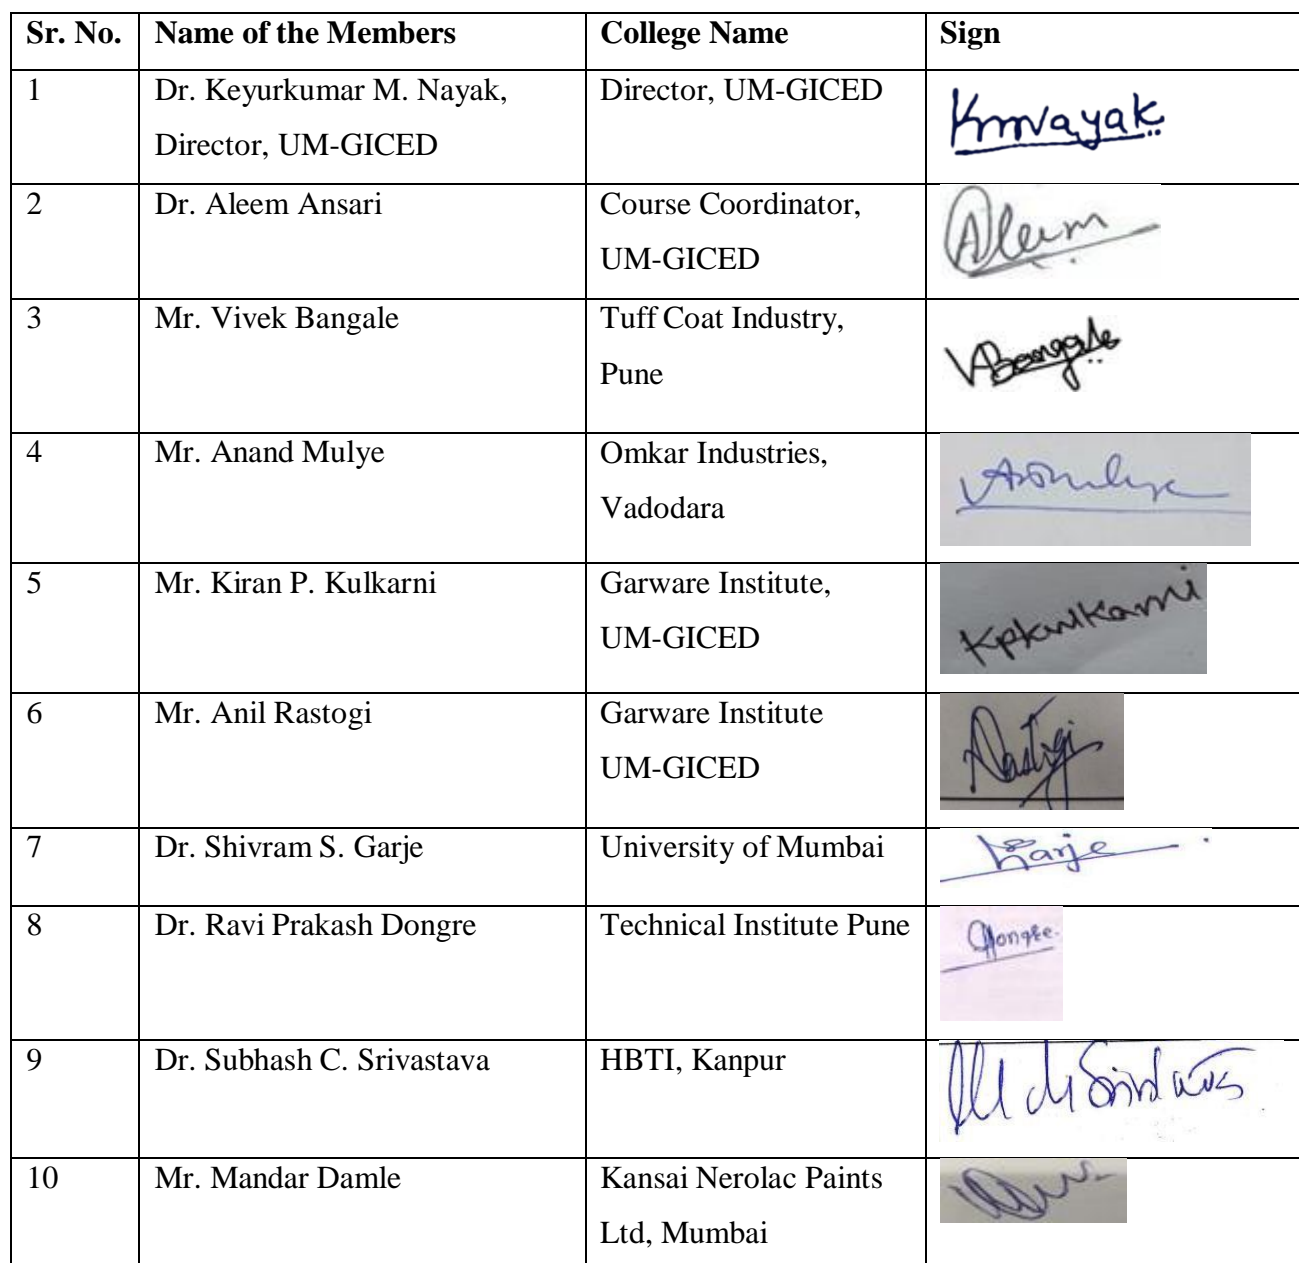 Sr. No. Name of the Members College Name Sign
1 Dr. Keyurkumar M. Nayak, Director, UM-GICED Kmnayak
Director, UM-GICED
2 Dr. Aleem Ansari Course Coordinator, Aleem
UM-GICED
3 Mr. Vivek Bangale Tuff Coat Industry, VBangale
Pune
4 Mr. Anand Mulye Omkar Industries,
Vadodara
5 Mr. Kiran P. Kulkarni Garware Institute, Kpkulkarni
UM-GICED
6 Mr. Anil Rastogi Garware Institute Rastogi
UM-GICED
7 Dr. Shivram S. Garje University of Mumbai Garje
8 Dr. Ravi Prakash Dongre Technical Institute Pune Dongre
9 Dr. Subhash C. Srivastava HBTI, Kanpur
10 Mr. Mandar Damle Kansai Nerolac Paints
Ltd, Mumbai